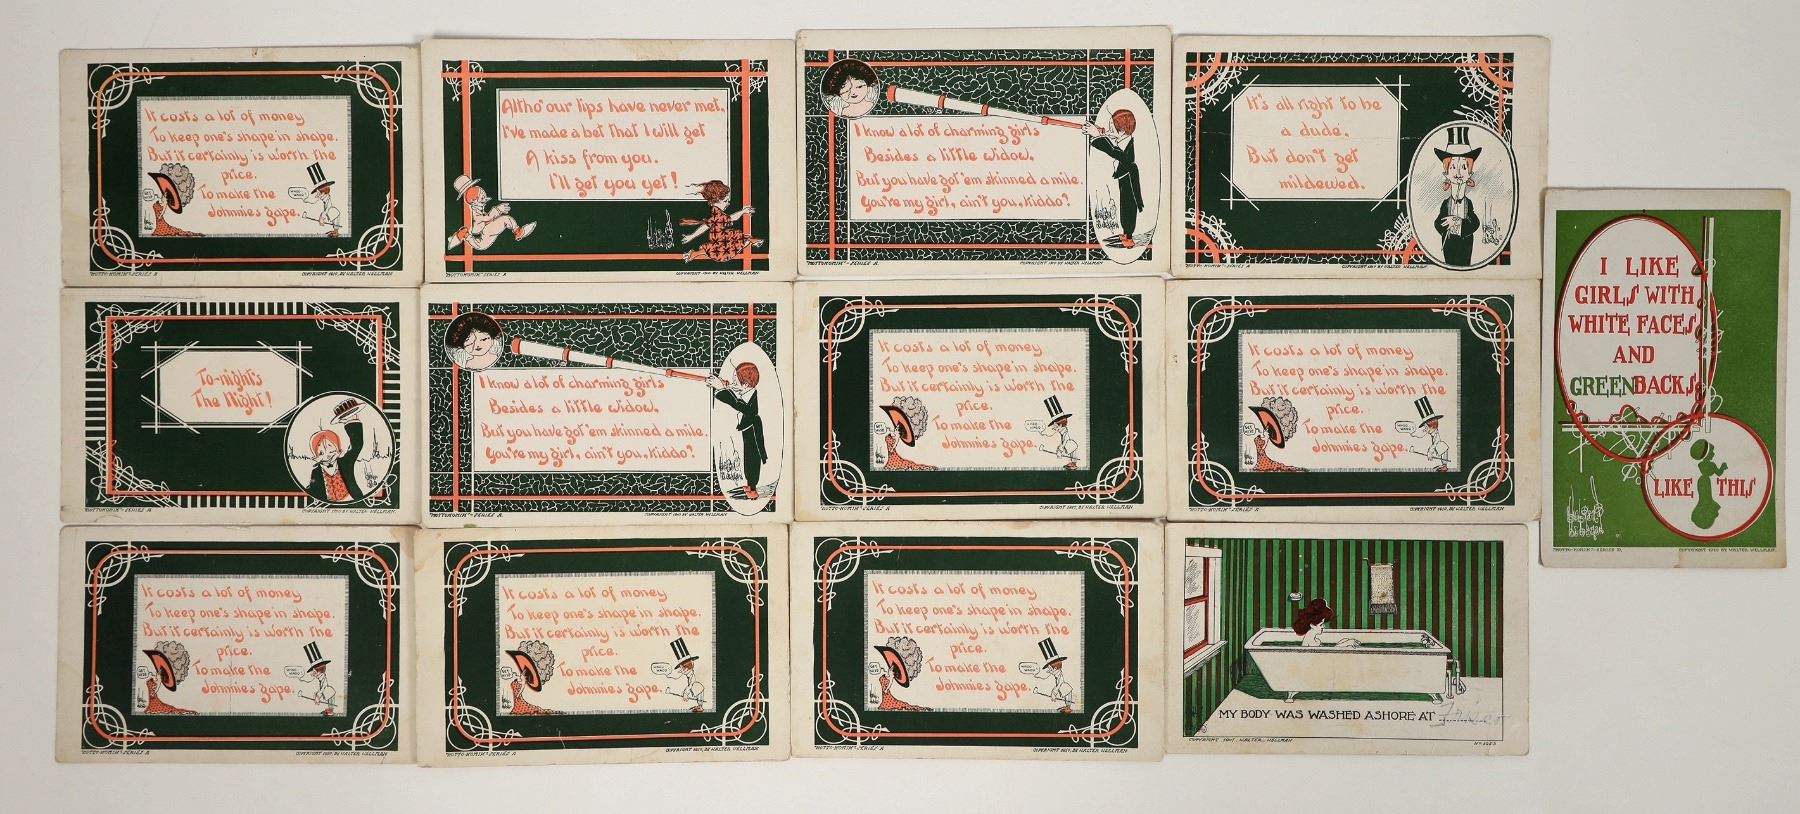 It costs a lot of money
To keep one's shape in shape.
But it certainly is worth the
price.
To make the
Johnnies gape.
"MOTTO-KOMIK"- SERIES A
COPYRIGHT 1910, BY WALTER WELLMAN
Altho' our lips have never met,
I've made a bet that I will get
A kiss from you.
I'll get you yet!
"MOTTO-KOMIK"- SERIES A
COPYRIGHT 1910 BY WALTER WELLMAN
I know a lot of charming girls
Besides a little widow,
But you have got 'em skinned a mile.
You're my girl, ain't you, Kiddo?
"MOTTO-KOMIK"- SERIES A.
COPYRIGHT 1910 BY WALTER WELLMAN
It's all right to be
a dude,
But don't get
mildewed.
"MOTTO-KOMIK"- SERIES A
COPYRIGHT 1910 BY WALTER WELLMAN
I LIKE
GIRLS WITH
WHITE FACES
AND
GREENBACKS
LIKE THIS
"MOTTO-KOMIK"- SERIES D.
COPYRIGHT 1910 BY WALTER WELLMAN.
To-night's
The Night!
"MOTTO-KOMIK"- SERIES A
COPYRIGHT 1910 BY WALTER WELLMAN.
I know a lot of charming girls
Besides a little widow,
But you have got 'em skinned a mile.
You're my girl, ain't you, Kiddo?
"MOTTO-KOMIK"- SERIES A.
COPYRIGHT 1910 BY WALTER WELLMAN
It costs a lot of money
To keep one's shape in shape.
But it certainly is worth the
price.
To make the
Johnnies gape.
"MOTTO-KOMIK"- SERIES A
COPYRIGHT 1910, BY WALTER WELLMAN
It costs a lot of money
To keep one's shape in shape.
But it certainly is worth the
price.
To make the
Johnnies gape.
"MOTTO-KOMIK"- SERIES A
COPYRIGHT 1910, BY WALTER WELLMAN
It costs a lot of money
To keep one's shape in shape.
But it certainly is worth the
price.
To make the
Johnnies gape.
"MOTTO-KOMIK"- SERIES A
COPYRIGHT 1910, BY WALTER WELLMAN
It costs a lot of money
To keep one's shape in shape.
But it certainly is worth the
price.
To make the
Johnnies gape.
"MOTTO-KOMIK"- SERIES A
COPYRIGHT 1910, BY WALTER WELLMAN
It costs a lot of money
To keep one's shape in shape.
But it certainly is worth the
price.
To make the
Johnnies gape.
"MOTTO-KOMIK"- SERIES A
COPYRIGHT 1910, BY WALTER WELLMAN
MY BODY WAS WASHED ASHORE AT
COPYRIGHT 1907, WALTER WELLMAN